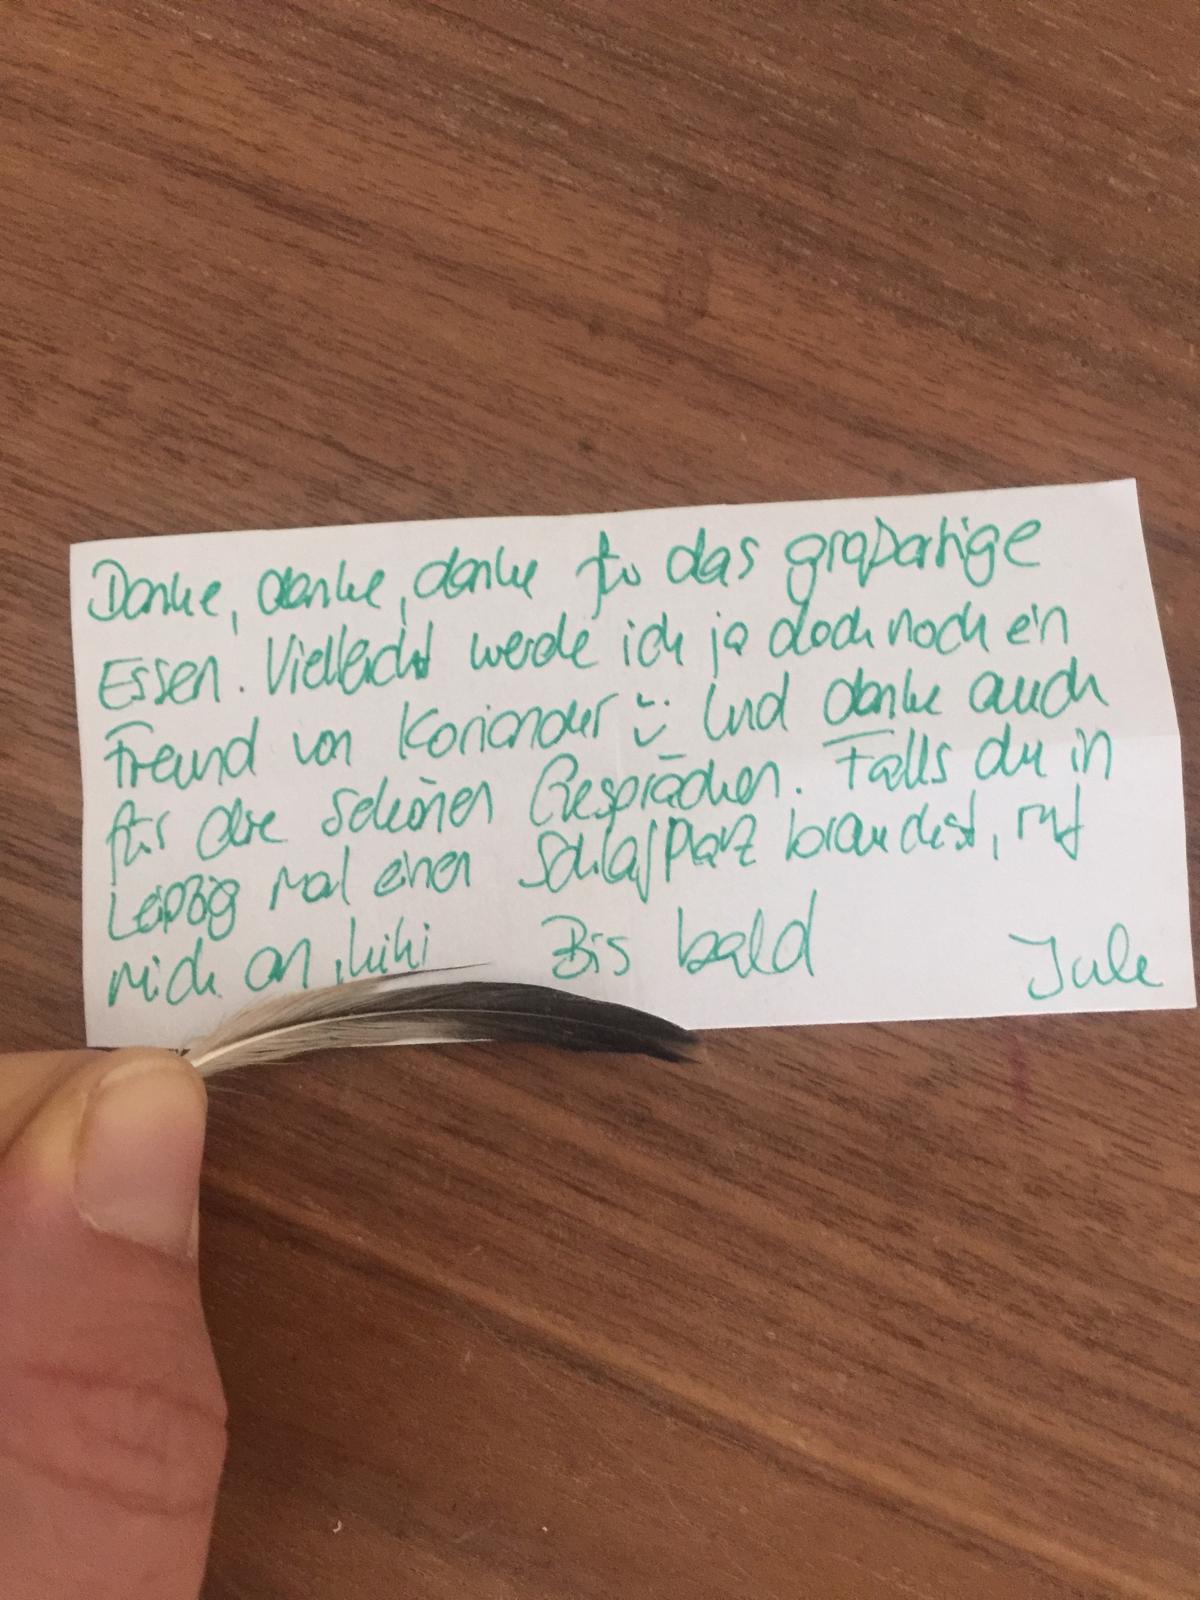 Danke, danke, danke für das großartige
Essen. Vielleicht werde ich ja doch noch ein
Freund von Koriander :) Und danke auch
für die schönen Gespräche. Falls du in
Leipzig mal einen Schlafplatz brauchst, ruf
mich an, hihi Bis bald Jule